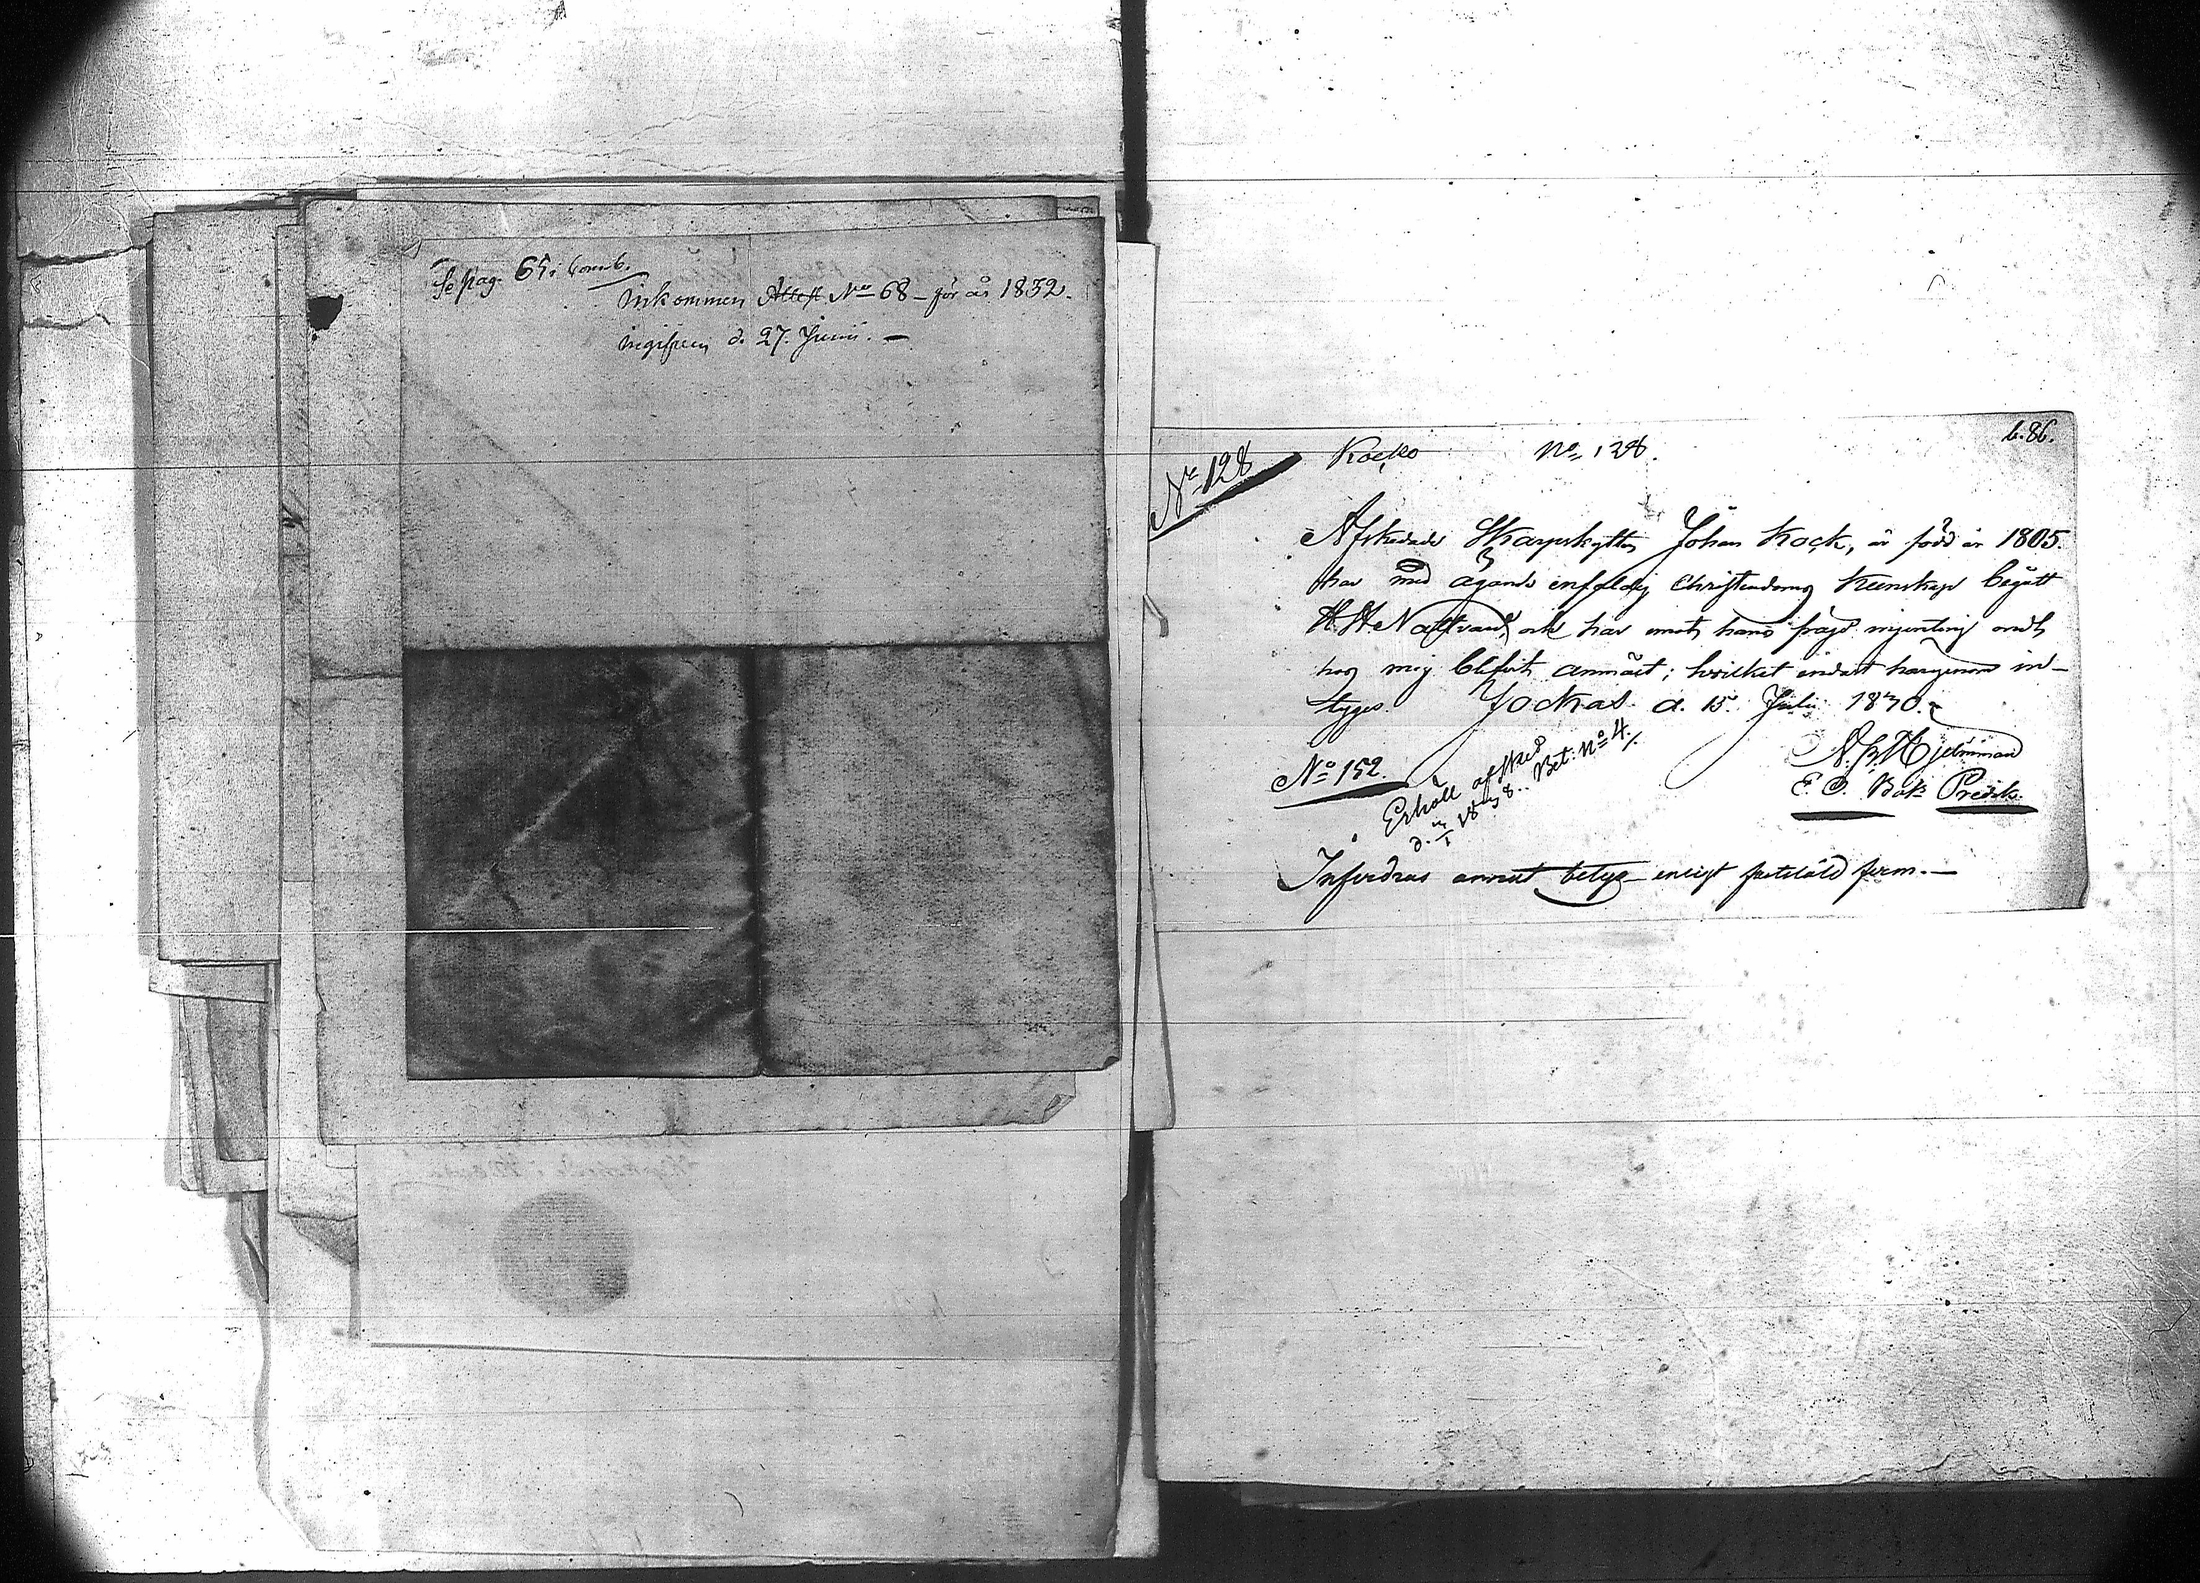 Se pag. 65 i Comb.
Inkommen Attest No 68 – för år 1832.
ingifven d. 27. Junii. –
b. 86.
No 128
Kocko No 128.
Afskedade Skarpskytten Johan Kock, är född år 1805.
har med ägande enfaldig Christendoms Kunskap begått
H. H. Nattvard, och har emot hans frägd ingenting ondt
hos mig blifvit anmält; hvilket endast härigenom in-
tygas. Jockas d. 15 Juli 1830.
N. Hjelmman
E. O. Bat. Predik.
No 152.
Erhöll afsked
d. 18 Bet. No 4.
Infordras annat betyg enligt faststäld form. –